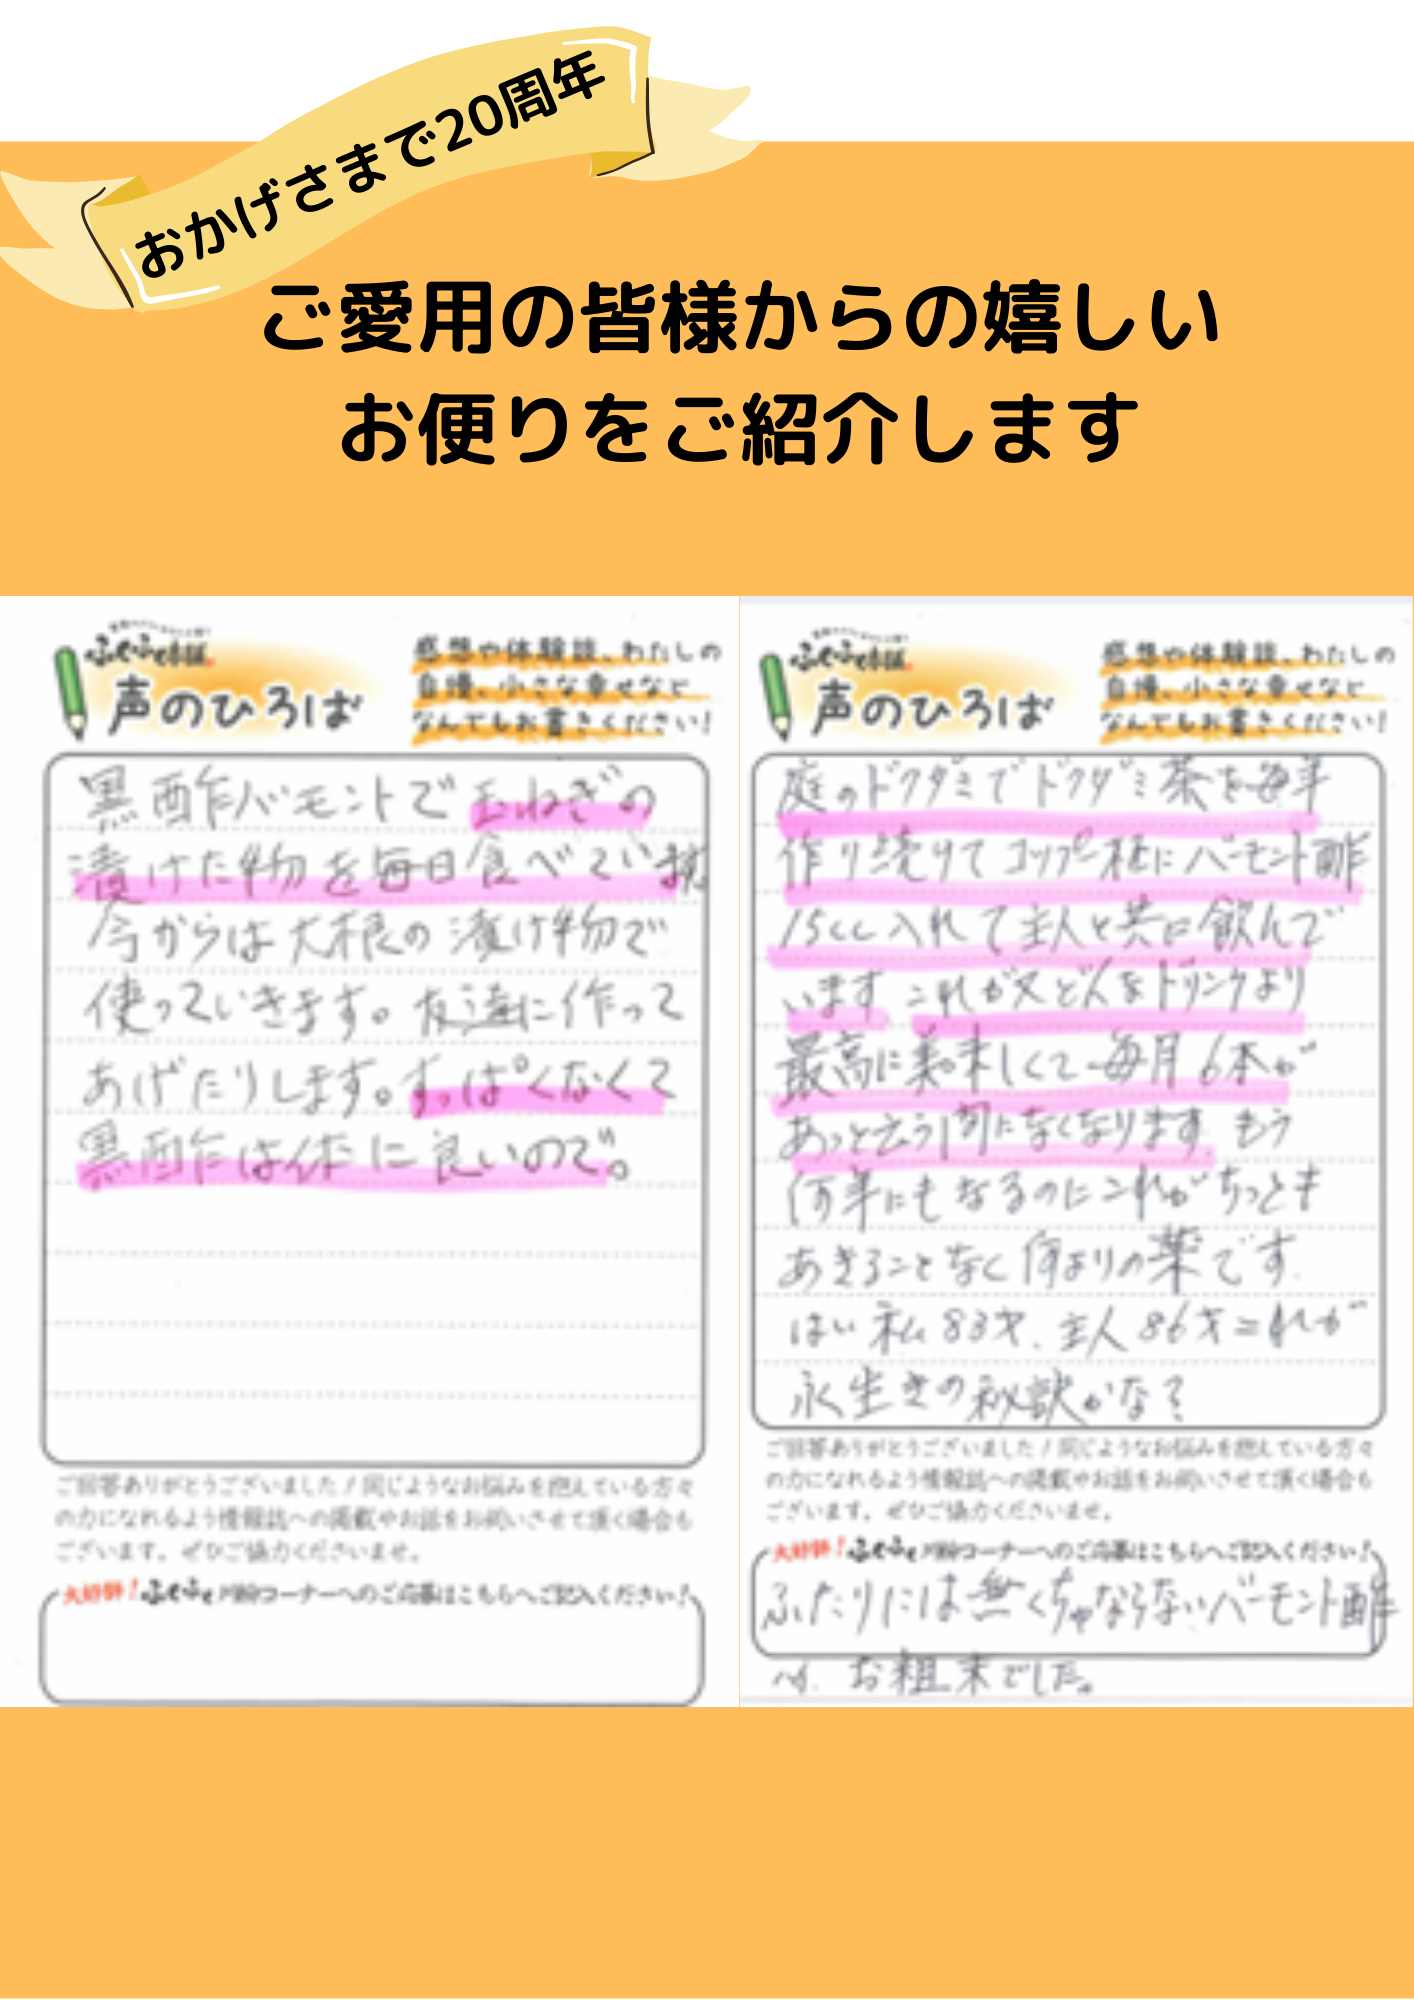 おかげさまで20周年
ご愛用の皆様からの嬉しい
お便りをご紹介します
声のひろば
感想や体験談、わたしの
自慢、小さな幸せなど
なんでもお書きください!
黒酢バーモントで玉ねぎの
漬けた物を毎日食べています
今からは大根の漬け物で
使っていきます。友達に作って
あげたりします。すっぱくなくて
黒酢は体に良いので。
ご回答ありがとうございました!同じようなお悩みを抱えている方々
の力になれるよう情報誌への掲載やお話をお伺いさせて頂く場合も
ございます。ぜひご協力くださいませ。
大好評!ふくふく川柳コーナーへのご応募はこちらへご記入ください!
声のひろば
感想や体験談、わたしの
自慢、小さな幸せなど
なんでもお書きください!
庭のドクダミでドクダミ茶を毎年
作り続けてコップ一杯にバーモント酢
15cc入れて主人と共に飲んで
います これが又どんなドリンクより
最高に美味しくて毎月6本が
あっと云う間になくなります。もう
何年にもなるのにこれがちっとも
あきることなく何よりの薬です.
はい私83才、主人86才これが
永生きの秘訣かな?
ご回答ありがとうございました!同じようなお悩みを抱えている方々
の力になれるよう情報誌への掲載やお話をお伺いさせて頂く場合も
ございます。ぜひご協力くださいませ。
大好評!ふくふく川柳コーナーへのご応募はこちらへご記入ください!
ふたりには無くちゃならないバーモント酢
お粗末でした。